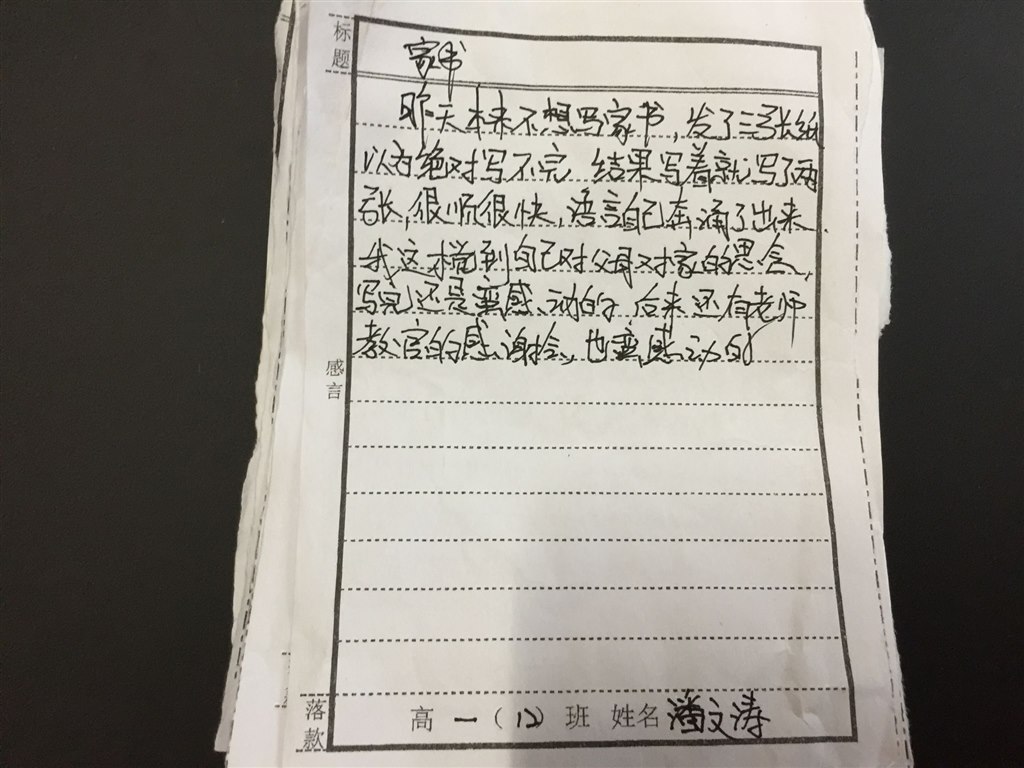 标题
家书
昨天本来不想写家书,发了三张纸
以为绝对写不完 结果写着就写了两
张,很顺很快,语言自己奔涌了出来.
我这才觉到自己对父母对家的思念,
写完还是蛮感动的 后来还有老师
教官的感谢拾,也蛮感动的
感言
落款
高一(12)班 姓名 潘文涛